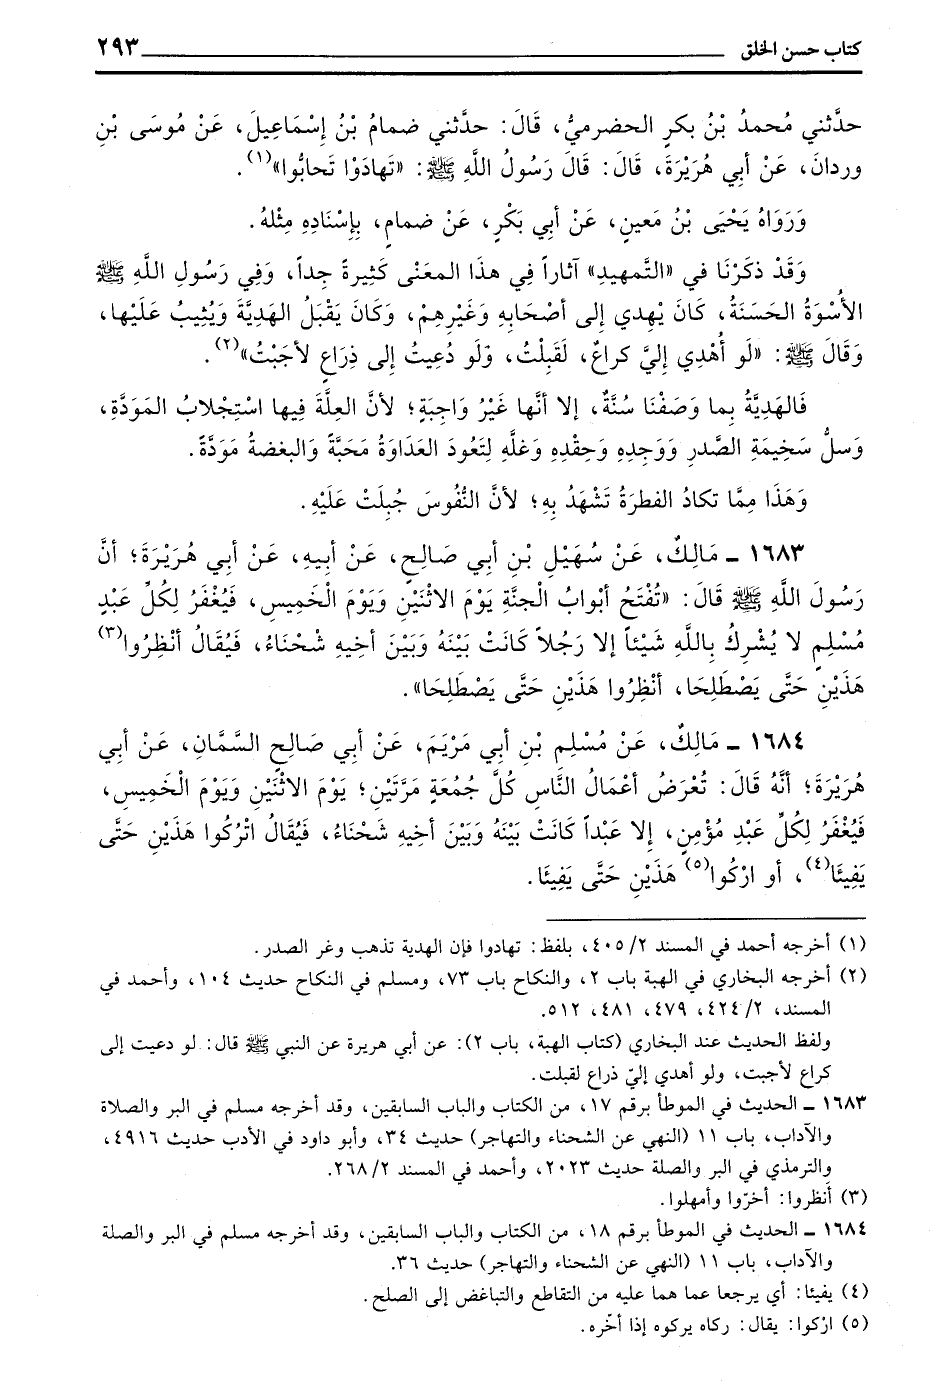 كتاب حسن الخلق ٢٩٣
حدَّثني مُحمدُ بْنُ بكرٍ الحضرميُّ، قَالَ: حدَّثني ضمامُ بْنُ إِسْمَاعِيلَ، عَنْ مُوسَى بْنِ
وردانَ، عَنْ أبي هُرَيْرَةَ، قَالَ: قَالَ رَسُولُ اللَّهِ ﷺ: «تَهادَوْا تَحابُّوا»(١).
وَرَوَاهُ يَحْيَى بْنُ مَعينٍ، عَنْ أبي بَكْرٍ، عَنْ ضمامٍ، بِإِسْنَادِهِ مِثْلهُ.
وَقَدْ ذكَرْنَا في «التَّمهيدِ» آثاراً فِي هذَا المعْنَى كَثِيرةً جِداً، وَفِي رَسُولِ اللَّهِ ﷺ
الأُسْوَةُ الحَسَنَةُ، كَانَ يُهدِي إلى أصْحَابِهِ وَغَيْرِهِمْ، وَكَانَ يَقْبَلُ الهَدِيَّةَ وَيُثِيبُ عَلَيْها،
وَقَالَ ﷺ: «لَو أُهْدِي إليَّ كراعٌ، لَقَبِلْتُ، وَلَو دُعِيتُ إلى ذِرَاعٍ لأجَبْتُ»(٢).
فَالهَدِيَّةُ بِما وَصَفْنَا سُنَّةٌ، إلا أنَّها غَيْرُ وَاجِبَةٍ؛ لأنَّ العِلَّةَ فِيها اسْتِجْلابُ المَوَدَّةِ،
وَسلُّ سَخِيمَةِ الصَّدرِ وَوَجدِهِ وَحِقْدِهِ وَغلَّهِ لِتَعُودَ العَدَاوَةُ مَحَبَّةً وَالبغضةُ مَوَدَّةً.
وَهَذَا مِمَّا تكادُ الفطرَةُ تَشْهَدُ بِهِ؛ لأنَّ النُّفُوسَ جُبِلَتْ عَلَيْهِ.
١٦٨٣ - مَالِكٌ، عَنْ سُهَيْلِ بْنِ أبي صَالِحٍ، عَنْ أبيهِ، عَنْ أبي هُرَيْرَةَ؛ أنَّ
رَسُولَ اللَّهِ ﷺ قَالَ: «تُفْتَحُ أبْوابُ الجنَّةِ يَوْمَ الاثْنَيْنِ وَيَوْمَ الْخَمِيسِ، فَيُغْفَرُ لِكُلِّ عَبْدٍ
مُسْلِمٍ لا يُشْرِكُ بِاللَّهِ شَيْئاً إلا رَجُلاً كَانَتْ بَيْنَهُ وَبَيْنَ أخِيهِ شْحْنَاءُ، فَيُقَالُ أنْظِرُوا(٣)
هَذَيْنِ حَتَّى يَصْطَلِحَا، أنْظِرُوا هَذَيْنِ حَتَّى يَصْطَلِحَا».
١٦٨٤ - مَالِكٌ، عَنْ مُسْلِمِ بْنِ أبي مَرْيَمَ، عَنْ أبي صَالِحٍ السَّمَّانِ، عَنْ أبي
هُرَيْرَةَ؛ أنَّهُ قَالَ: تُعْرَضُ أعْمَالُ النَّاسِ كُلَّ جُمُعَةٍ مَرَّتَيْنِ؛ يَوْمَ الاثْنَيْنِ وَيَوْمَ الْخَمِيسِ،
فَيُغْفَرُ لِكُلِّ عَبْدٍ مُؤْمِنٍ، إلا عَبْداً كَانَتْ بَيْنَهُ وَبَيْنَ أخِيهِ شَحْنَاءُ، فَيُقَالُ اتْرُكُوا هَذَيْنِ حَتَّى
يَفِيئَا(٤)، أو ارْكُوا(٥) هَذَيْنِ حَتَّى يَفِيئَا.
(١) أخرجه أحمد في المسند ٤٠٥/٢، بلفظ: تهادوا فإن الهدية تذهب وغر الصدر.
(٢) أخرجه البخاري في الهبة باب ٢، والنكاح باب ٧٣، ومسلم في النكاح حديث ١٠٤، وأحمد في
المسند، ٤٢٤/٢، ٤٧٩، ٤٨١، ٥١٢.
ولفظ الحديث عند البخاري (كتاب الهبة، باب ٢): عن أبي هريرة عن النبي ﷺ قال: لو دعيت إلى
كراع لأجبت، ولو أهدي إليّ ذراع لقبلت.
١٦٨٣ - الحديث في الموطأ برقم ١٧، من الكتاب والباب السابقين، وقد أخرجه مسلم في البر والصلاة
والآداب، باب ١١ (النهي عن الشحناء والتهاجر) حديث ٣٤، وأبو داود في الأدب حديث ٤٩١٦،
والترمذي في البر والصلة حديث ٢٠٢٣، وأحمد في المسند ٢٦٨/٢.
(٣) أنظروا: أخرّوا وأمهلوا.
١٦٨٤ - الحديث في الموطأ برقم ١٨، من الكتاب والباب السابقين، وقد أخرجه مسلم في البر والصلة
والآداب، باب ١١ (النهي عن الشحناء والتهاجر) حديث ٣٦.
(٤) يفيئا: أي يرجعا عما هما عليه من التقاطع والتباغض إلى الصلح.
(٥) ارْكوا: يقال: ركاه يركوه إذا أخّره.